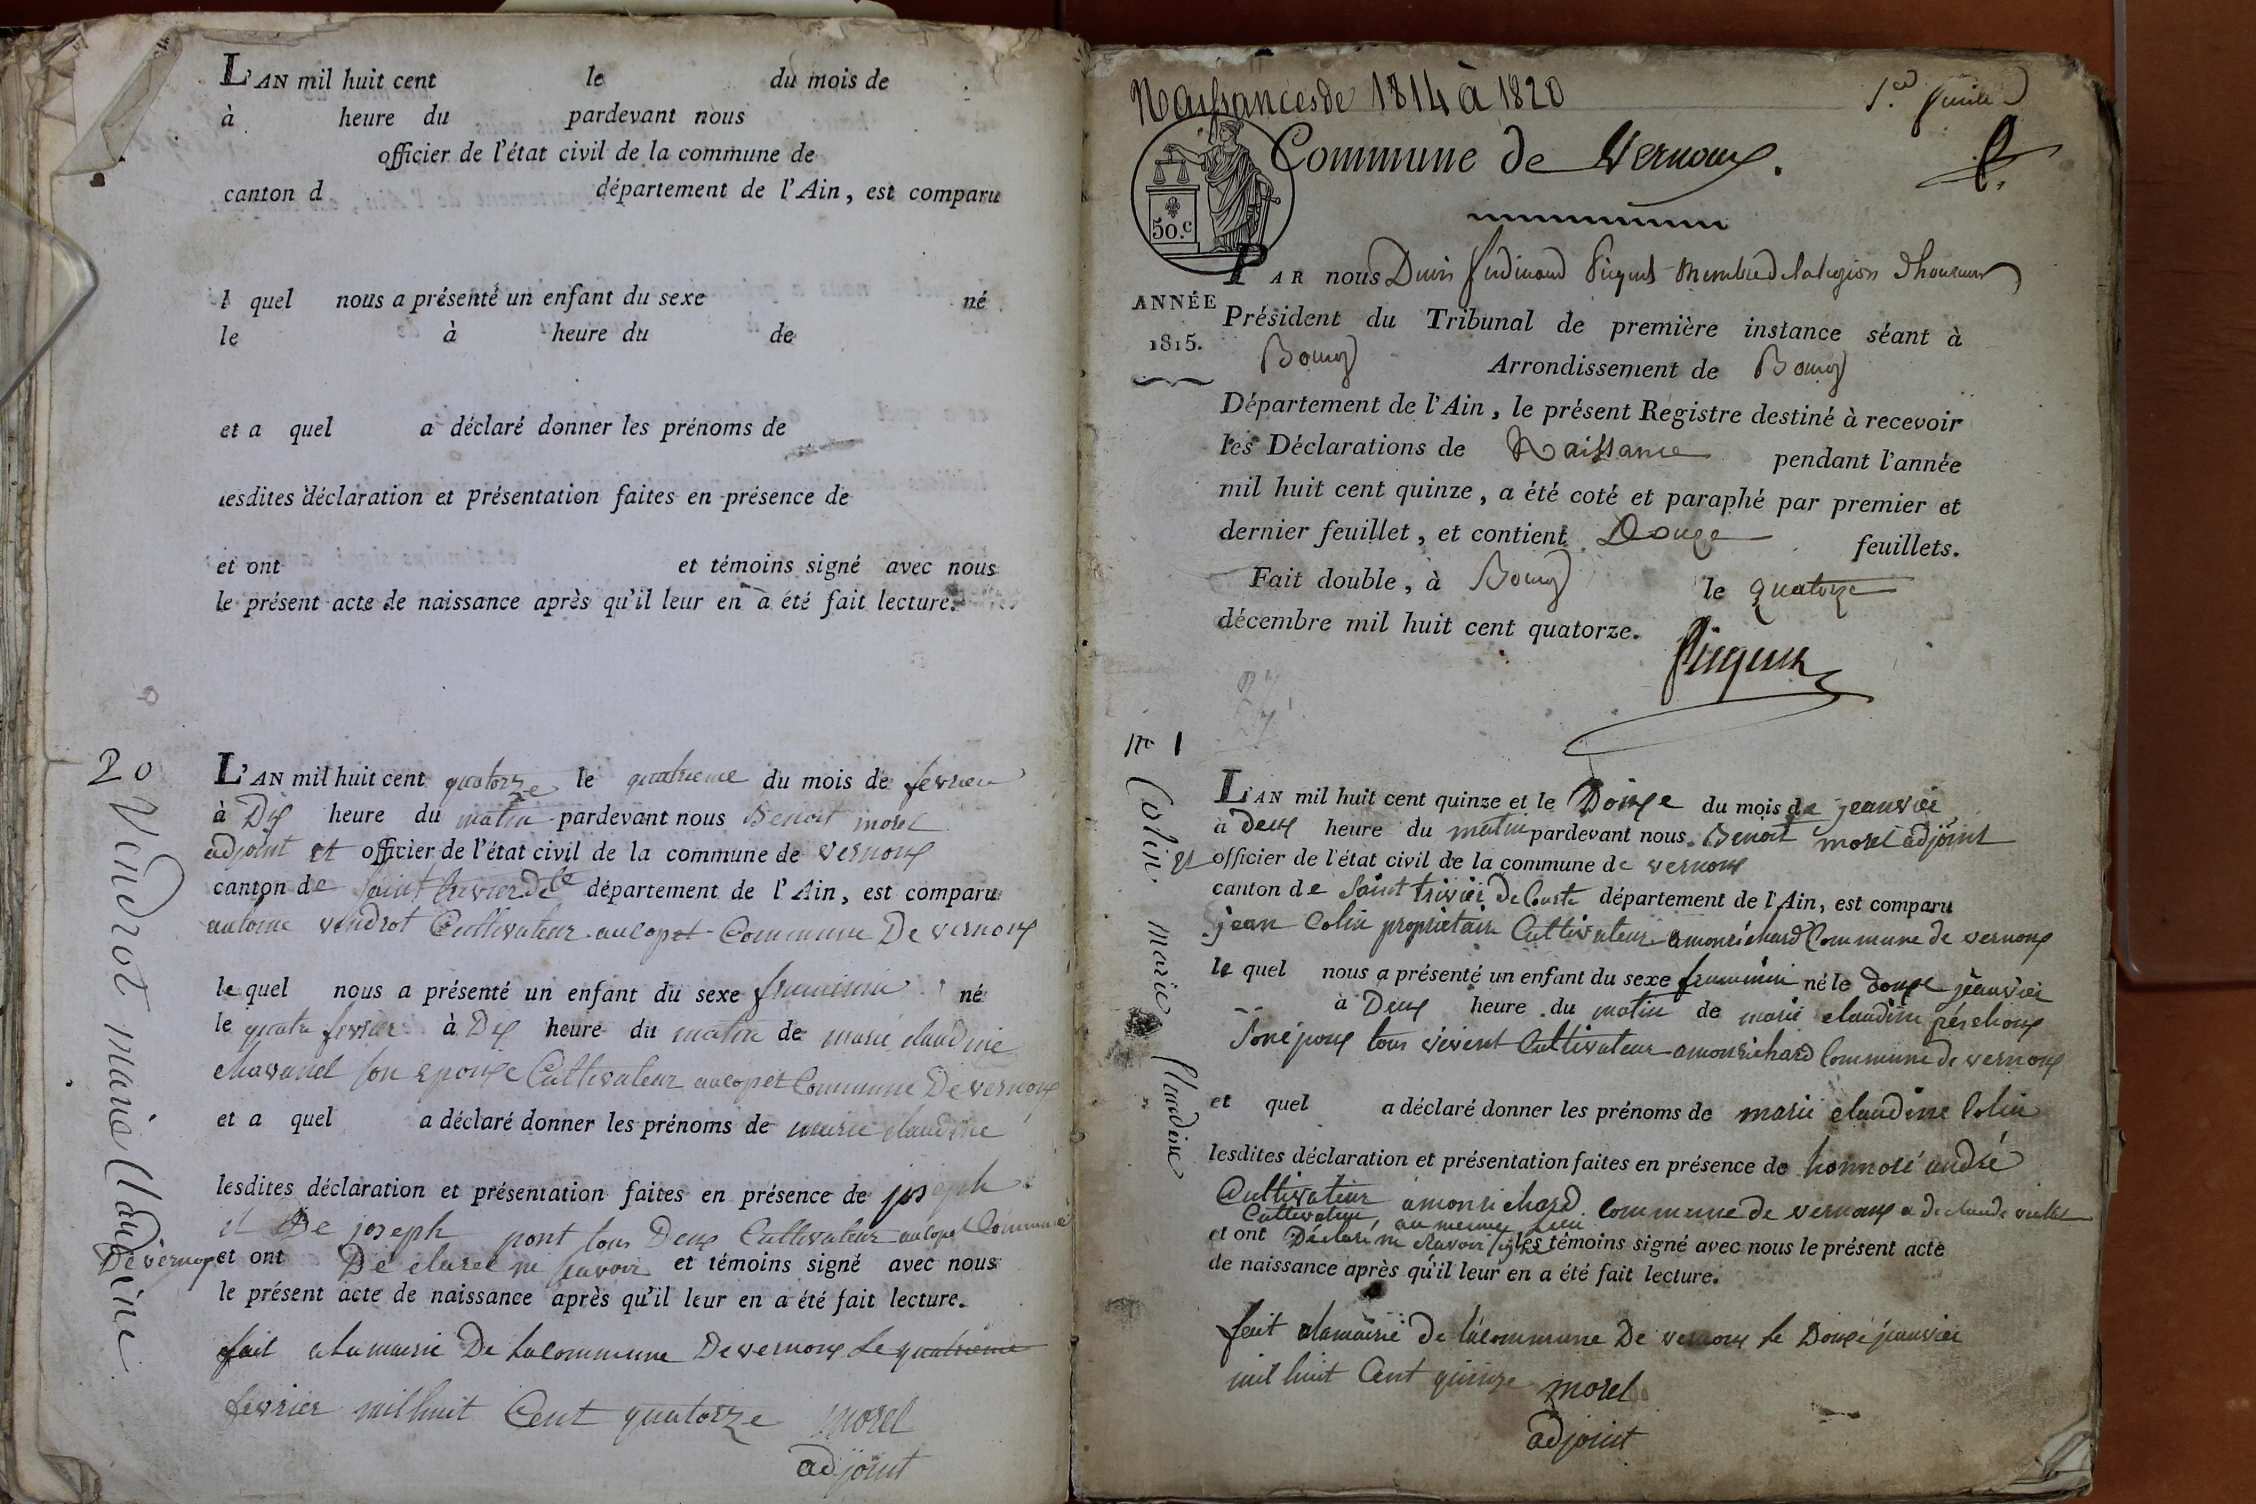 L'AN mil huit cent le du mois de
à heure du pardevant nous
officier de l'état civil de la commune de
canton d département de l'Ain, est comparu
l quel nous a présenté un enfant du sexe né
le à heure du de
et a quel a déclaré donner les prénoms de
lesdites déclaration et présentation faites en présence de
et ont et témoins signé avec nous
le présent acte de naissance après qu'il leur en a été fait lecture.
20 Vendrot marie Claudine
L'AN mil huit cent quatorze le quatrieme du mois de fevrier
à Dix heure du matin pardevant nous Benoit morel
adjoint et officier de l'état civil de la commune de vernoux
canton de Saint trivier de Ce département de l'Ain, est comparu
antoine vendrot Cultivateur au copet Commune De vernoux
le quel nous a présenté un enfant du sexe feminin né
le quatre fevrier à Dix heure du matin de marie claudine
chavanel son epouse Cultivateur au copet Commune De vernoux
et a quel a déclaré donner les prénoms de marie claudine
lesdites déclaration et présentation faites en présence de joseph
et De joseph pont tous Deux Cultivateur au copet Commune
De vernoux et ont Dé claree ne savoir et témoins signé avec nous
le présent acte de naissance après qu'il leur en a été fait lecture.
fait a la mairie De la Commune De vernoux le quatrieme
fevrier mil huit Cent quatorze morel
adjoint
Naissances de 1814 à 1820
1.er feuillet
Commune de Vernoux.
50.c
PAR nous Denis ferdinand Picquet membre de la legion d'honneur
ANNÉE
1815.
Président du Tribunal de première instance séant à
Bourg Arrondissement de Bourg
Département de l'Ain, le présent Registre destiné à recevoir
les Déclarations de Naissance pendant l'année
mil huit cent quinze, a été coté et paraphé par premier et
dernier feuillet, et contient Douze feuillets.
Fait double, à Bourg le quatorze
décembre mil huit cent quatorze.
Picquet
n° 1 Colin marie Claudine
L'AN mil huit cent quinze et le Douze du mois de jeanvier
à deux heure du matin pardevant nous Benoit morel adjoint
et officier de l'état civil de la commune de vernoux
canton de Saint trivier De Courte département de l'Ain, est comparu
jean Colin proprietaire Cultivateur amonrichard Commune de vernoux
le quel nous a présenté un enfant du sexe feminin né le douze jeanvier
à Deux heure du matin de marie claudine péschoux
Son époux tous vivent Cultivateur amonrichard Commune de vernoux
et quel a déclaré donner les prénoms de marie claudine Colin
lesdites déclaration et présentation faites en présence de honnoré andré
Cultivateur amonrichard commune de vernoux a de claude viellet
Cultivateur au meme lieu
et ont Déclaré ne savoir signé les témoins signé avec nous le présent acte
de naissance après qu'il leur en a été fait lecture.
fait alamairie De la commune De vernoux le Douze jeanvier
mil huit Cent quinze morel
adjoint